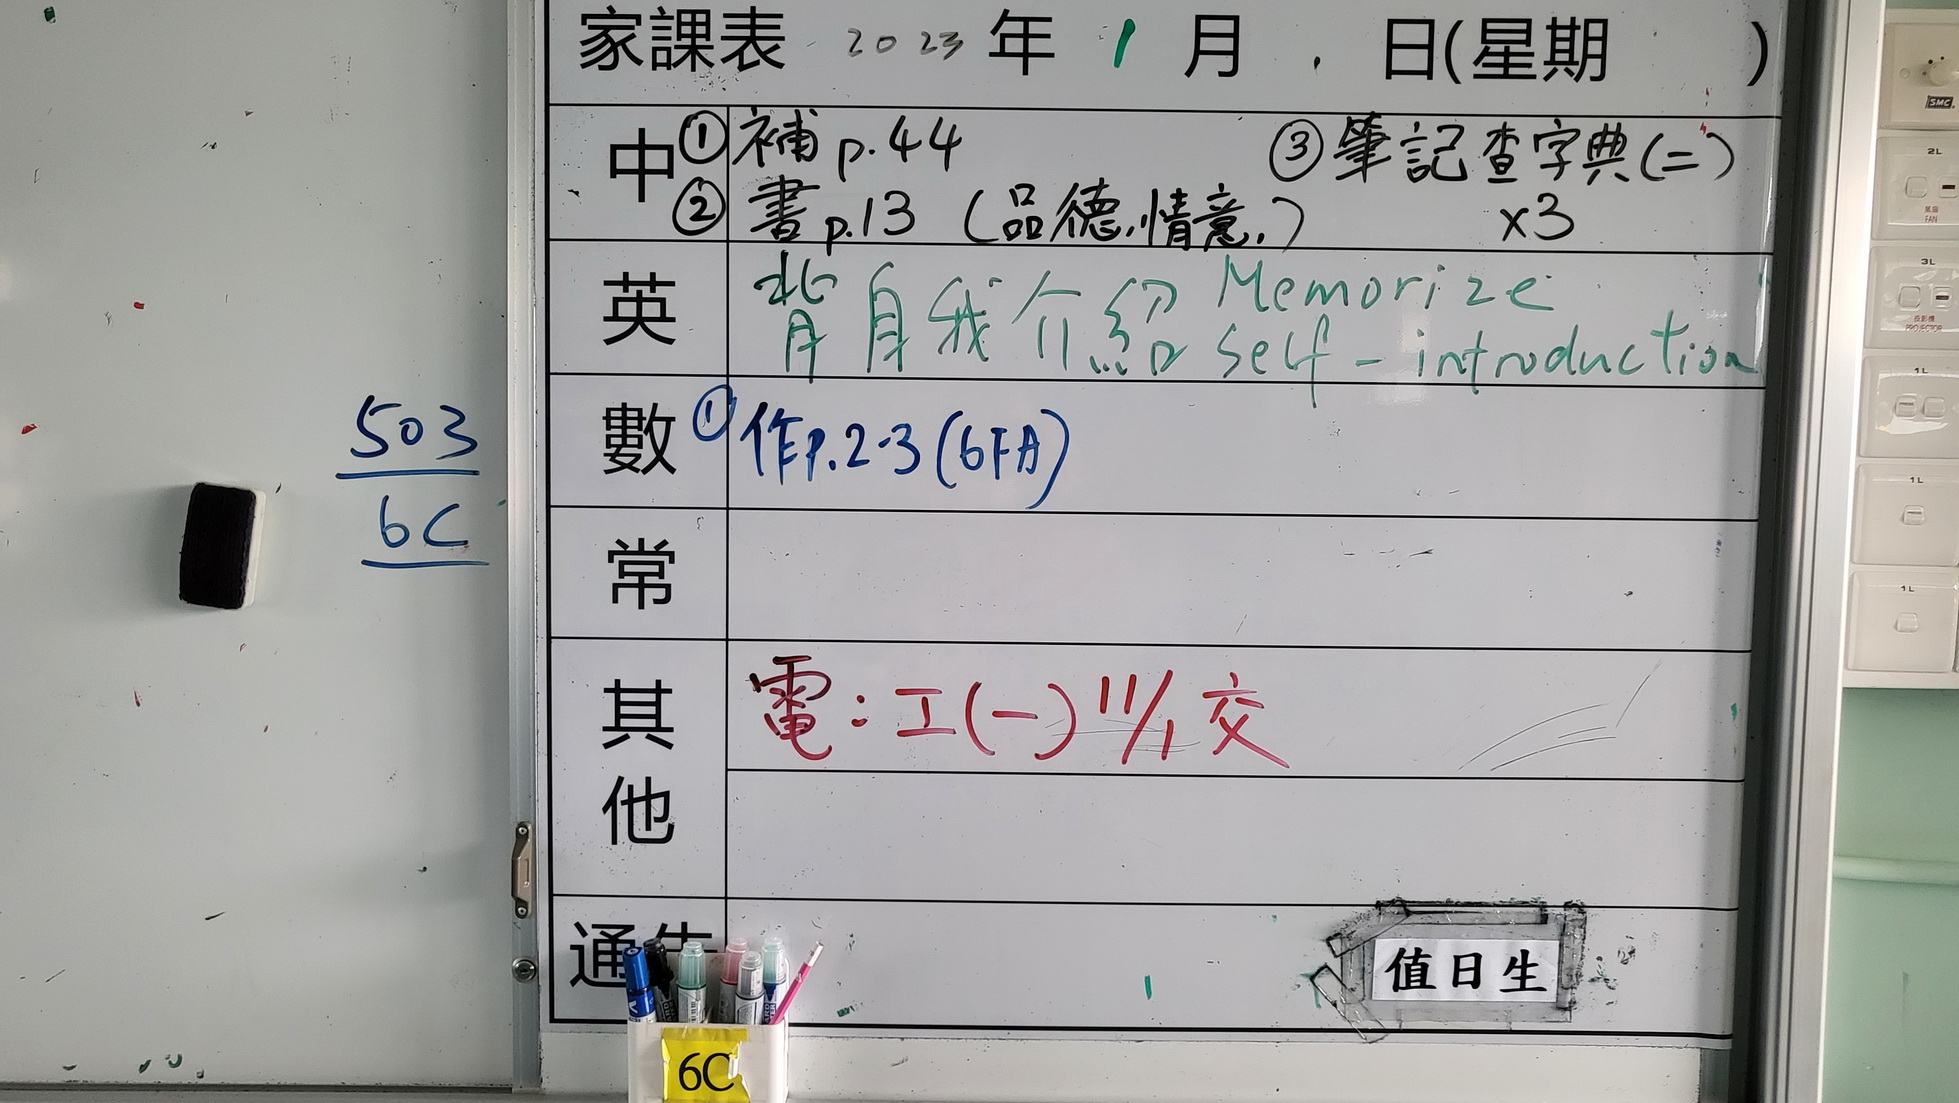 家課表 2023 年 1 月 日(星期 )
中 ① 補 p.44 ③ 筆記查字典(二)
② 書 p.13 (品德,情意,) x3
英 背自我介紹 Memorize
self-introduction
數 ① 作P.2-3(6FA)
503
6C
常
其他 電:工(一) 11/1 交
通告
值日生
6C
SMC
2L
風扇
FAN
3L
投影機
PROJECTOR
1L
1L
1L